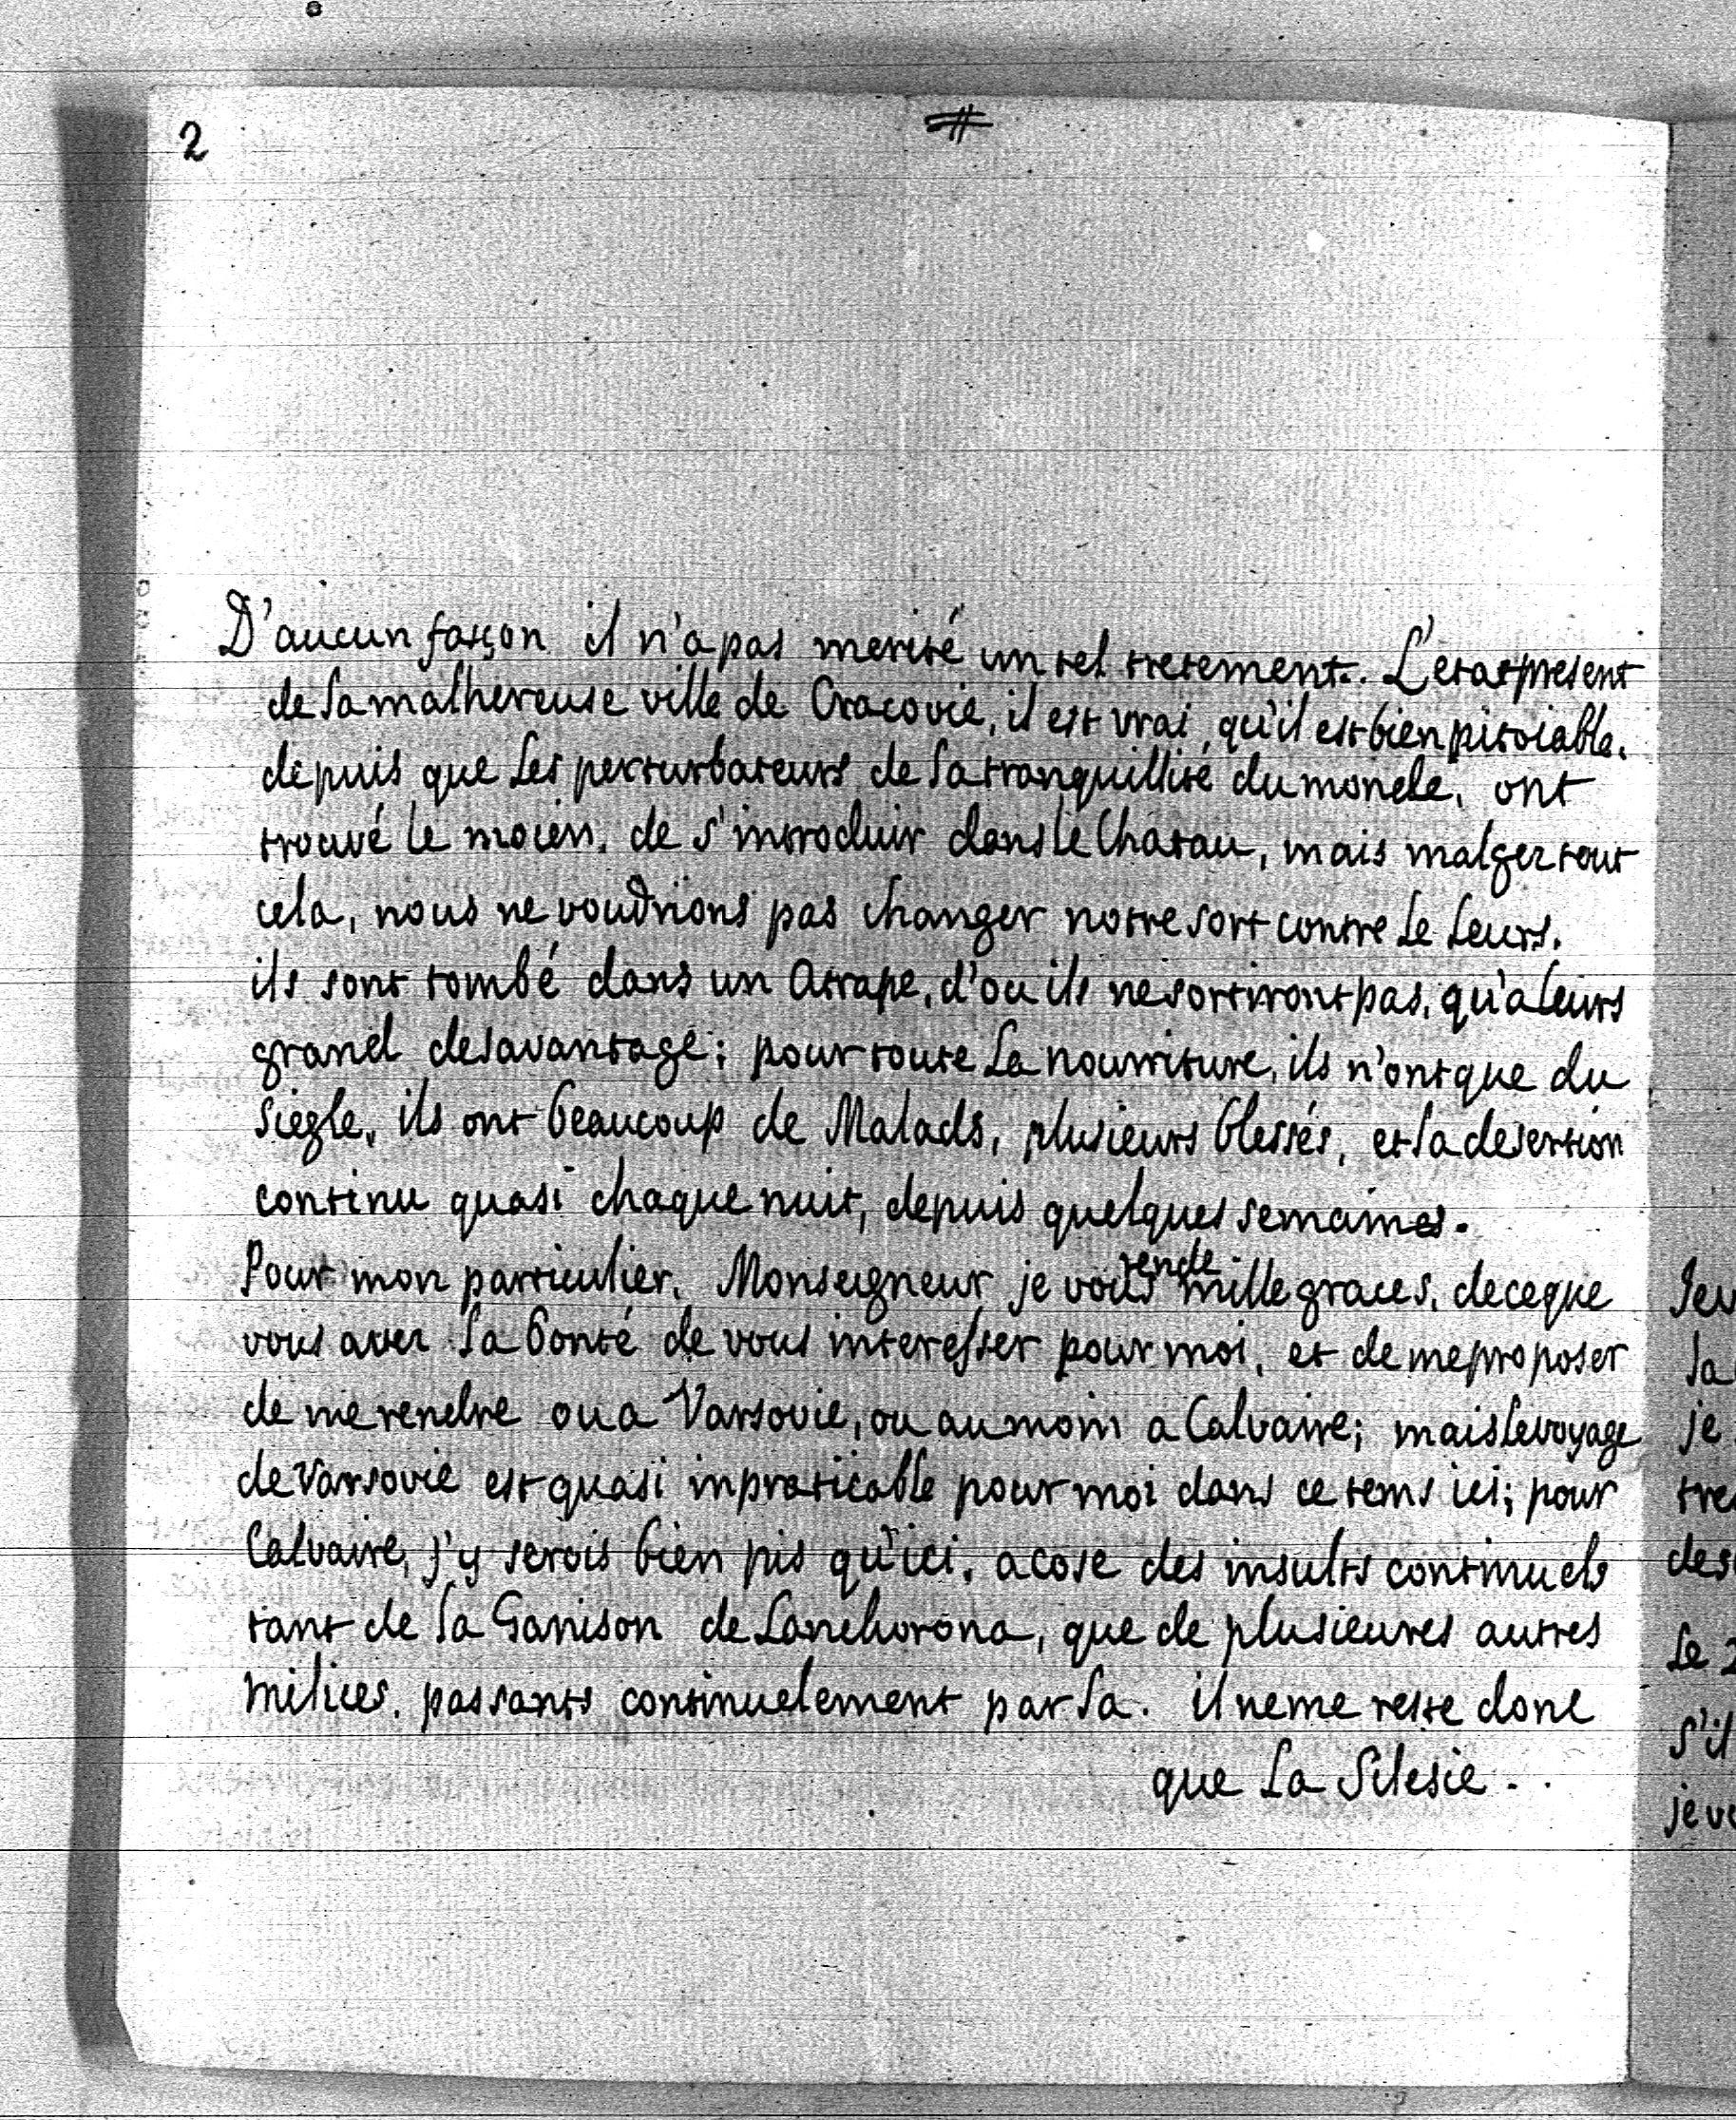 2
#
D'aucun façon il n'a pas merité un tel tretement. L'etat present
de la malhereuse ville de Cracovie, il est vrai, qu'il est bien pitoiable,
depuis que les perturbateurs de la tranquillité du monde, ont
trouvé le moien, de s'introduir dans le Chatau, mais malger tout
cela, nous ne voudrions pas changer notre sort contre le leurs.
ils sont tombé dans un Atrape, d'ou ils ne sortiront pas, qu'a leurs
grand desavantage; pour toute la nourriture, ils n'ont que du
siegle, ils ont beaucoup de Malads, plusieurs blessés, et la desertion
continu quasi chaque nuit, depuis quelques semaines.
Pour mon particulier, Monseigneur je vous rende mille graces, de ce que
vous avez la bonté de vous interesser pour moi, et de me proposer
de me rendre ou a Varsovie, ou au moin a Calvaire; mais le voyage
de Varsovie est quasi inpraticable pour moi dans ce tems ici; pour
Calvaire, j'y serois bien pis qu'ici, a cose des insults continuels
tant de la Ganison de Lanchorona, que de plusieures autres
milices, passants continuelement par la. il ne me reste donc
que La Silesie..
Jeu
la
je
tre
des
Le
s'il
je vo